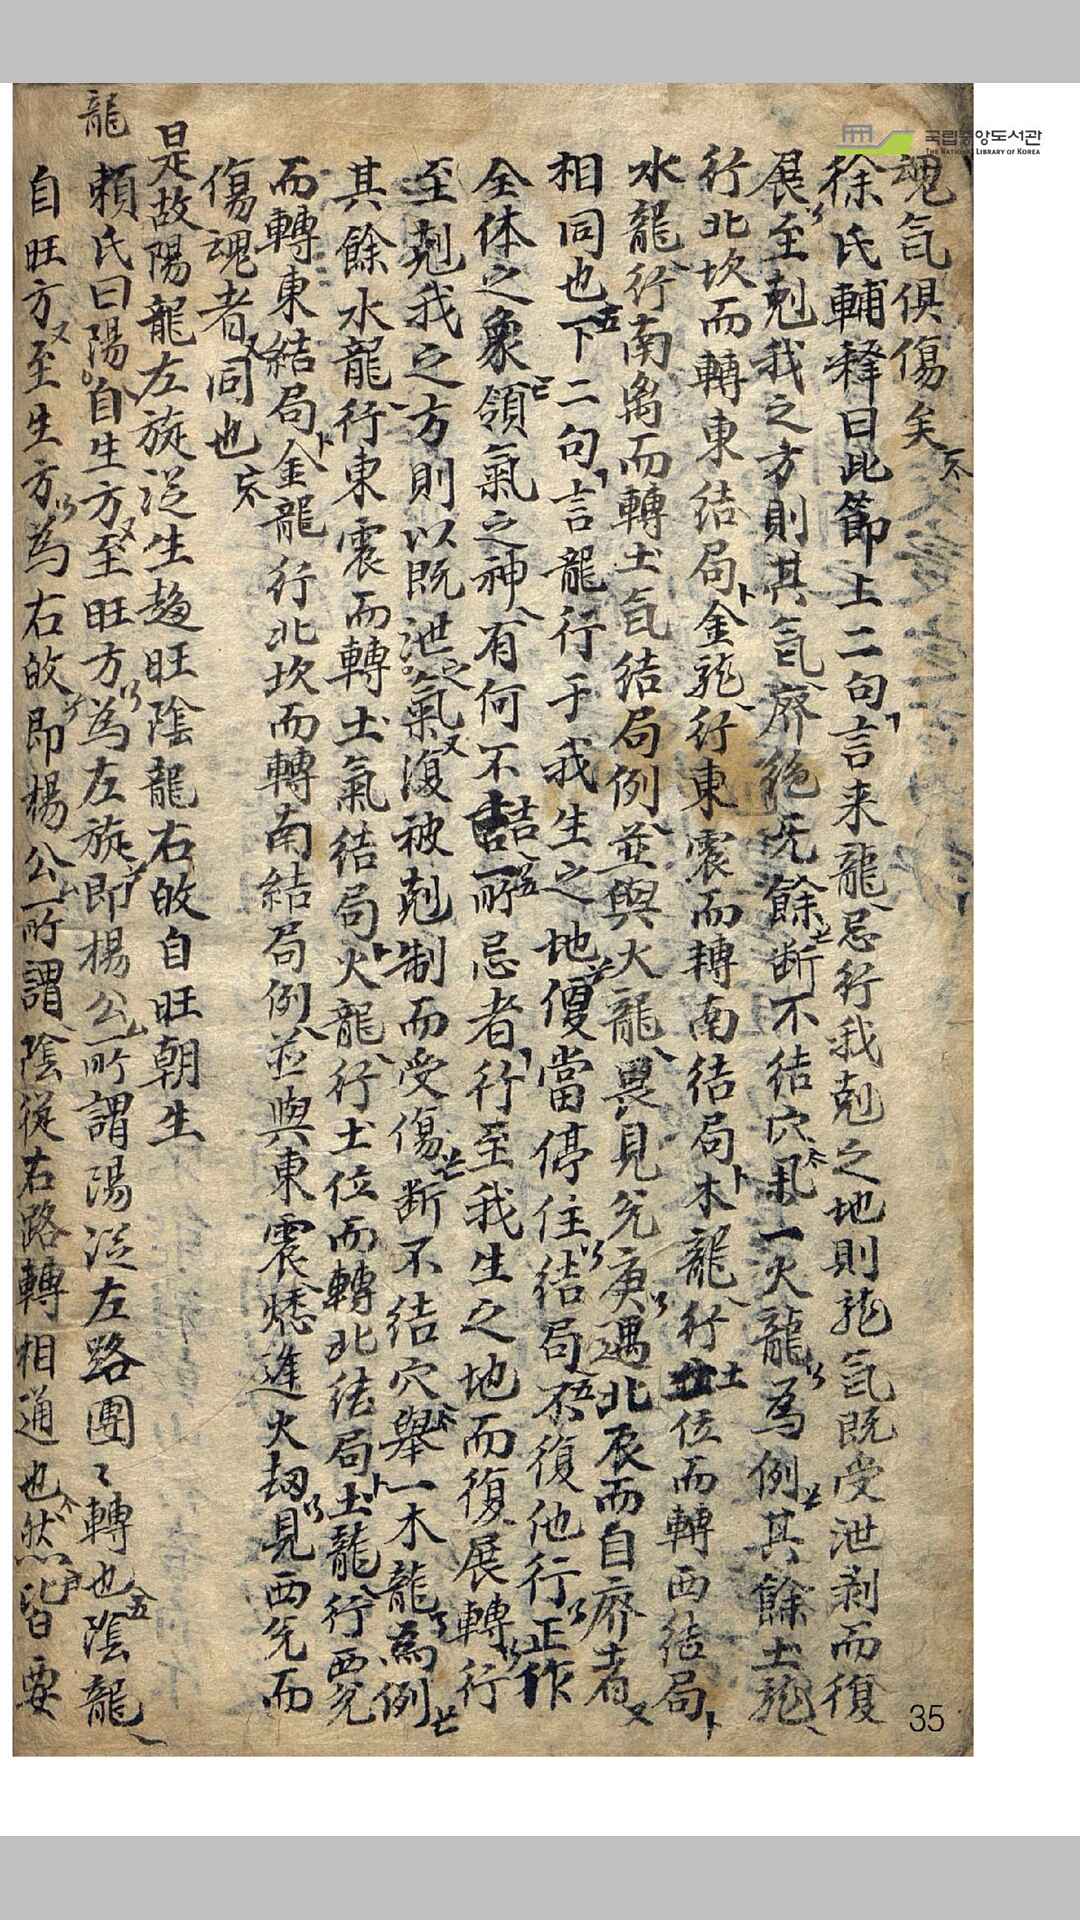 魂気俱傷矣
徐氏輔釋曰此節上二句言来龍忌行我剋之地則龍気既受泄剥而復
展至剋我之方則其気廃絶无餘断不結穴凡一火龍為例其餘土龍
行北坎而轉東結局金龍行東震而轉南結局木龍行土位而轉西結局
水龍行南离而轉土気結局例並與火龍畏見兌庚遇北辰而自廃者
相同也下二句言龍行于我生之地便當停住結局不復他行正作
全体之象領氣之神有何不喆所忌者行至我生之地而復展轉行
至剋我之方則以既泄氣復被剋制而受傷断不結穴舉一木龍為例
其餘水龍行東震而轉土氣結局火龍行土位而轉北結局土龍行西兌
而轉東結局金龍行北坎而轉南結局例並與東震愁逢火刼見西兌而
傷魂者同也
是故陽龍左旋従生趨旺陰龍右攱自旺朝生
龍
賴氏曰陽自生方至旺方為左旋即楊公所謂陽従左路團〻轉也陰龍
自旺方至生方為右攱即楊公所謂陰從右路轉相通也然皆要
국립중앙도서관
THE NATIONAL LIBRARY OF KOREA
35